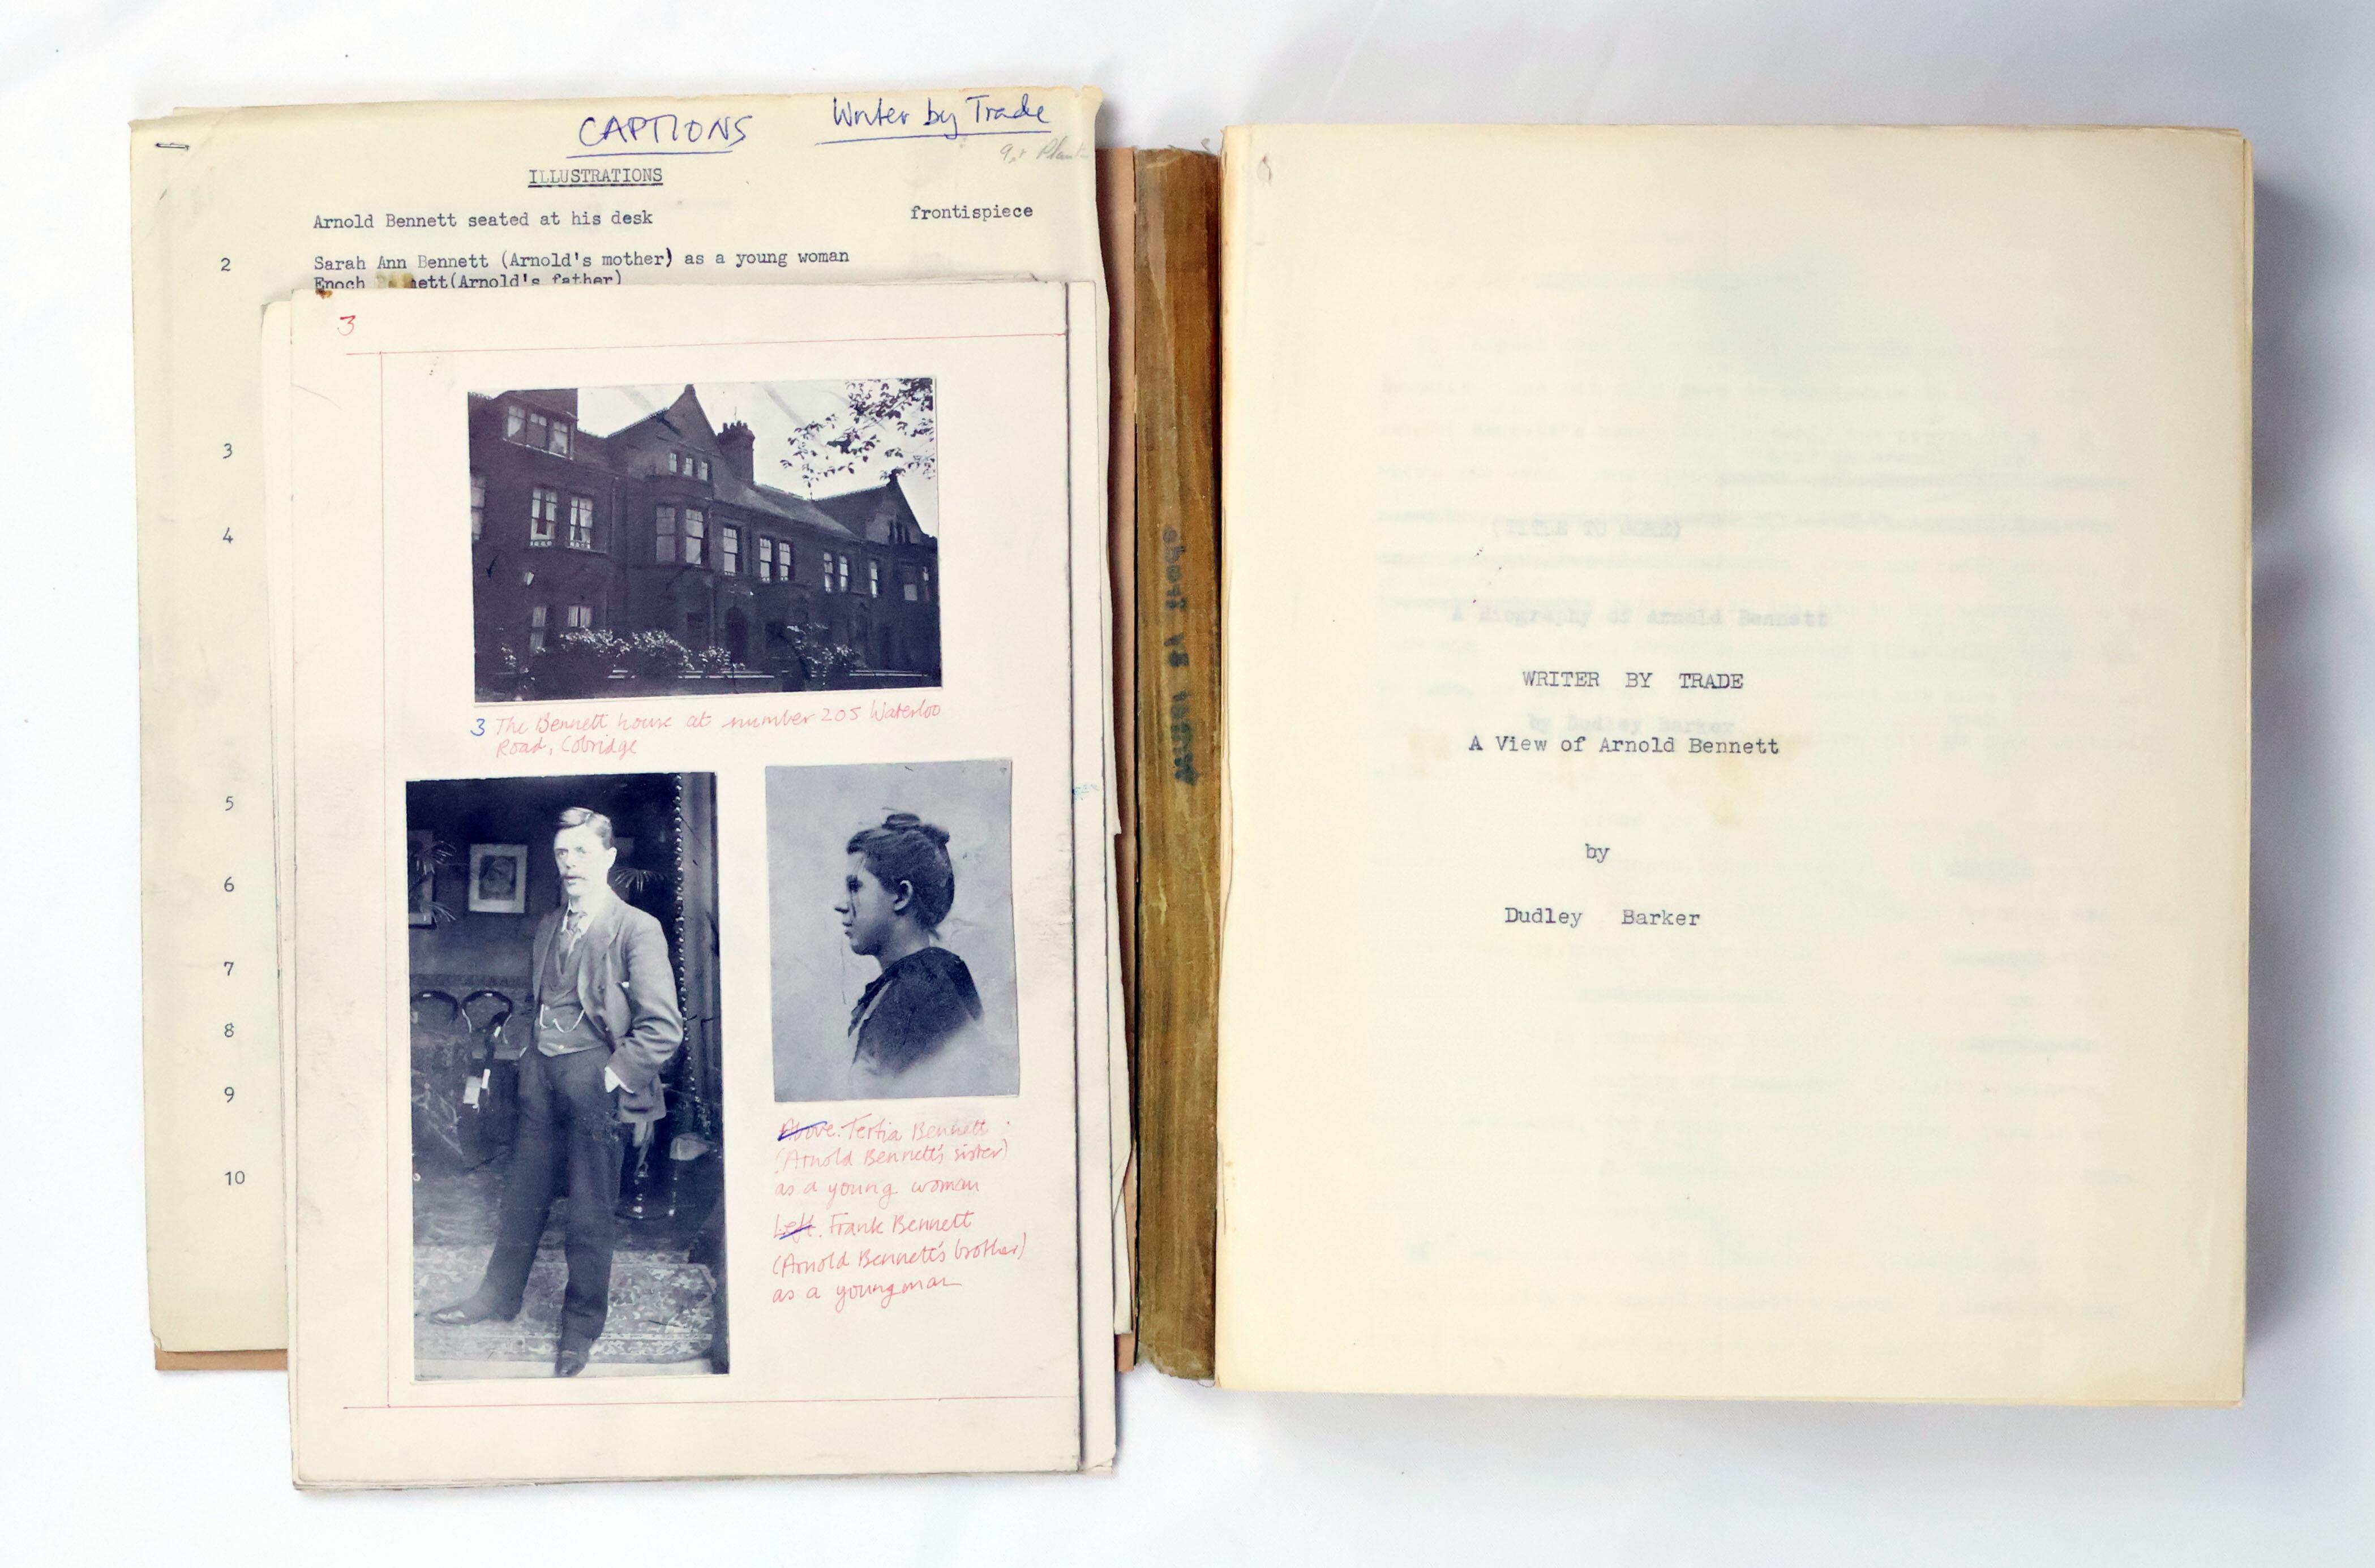 CAPTIONS Writer by Trade
ILLUSTRATIONS
Arnold Bennett seated at his desk frontispiece
2 Sarah Ann Bennett (Arnold's mother) as a young woman
Enoch (Arnold's father)
3
4
5
6
7
8
9
10
3
3 The Bennett house at number 205 Waterloo
Road, Cobridge
Above. Tertia Bennett
(Arnold Bennett's sister)
as a young woman
Left. Frank Bennett
(Arnold Bennett's brother)
as a young man
Writer By Trade
(TITLE TO COME)
A Biography of Arnold Bennett
WRITER BY TRADE
by Dudley Barker
A View of Arnold Bennett
by
Dudley Barker